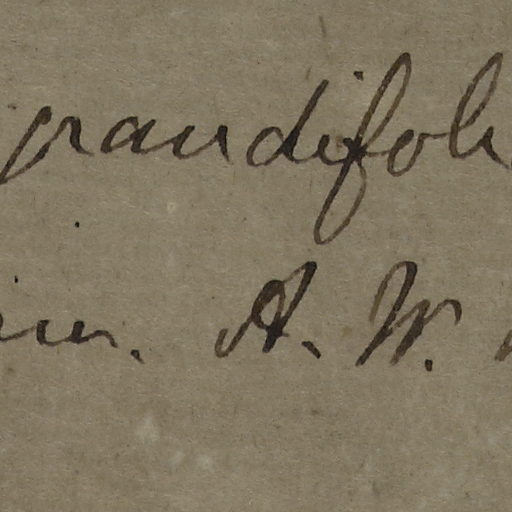 grandifoli
A. W.